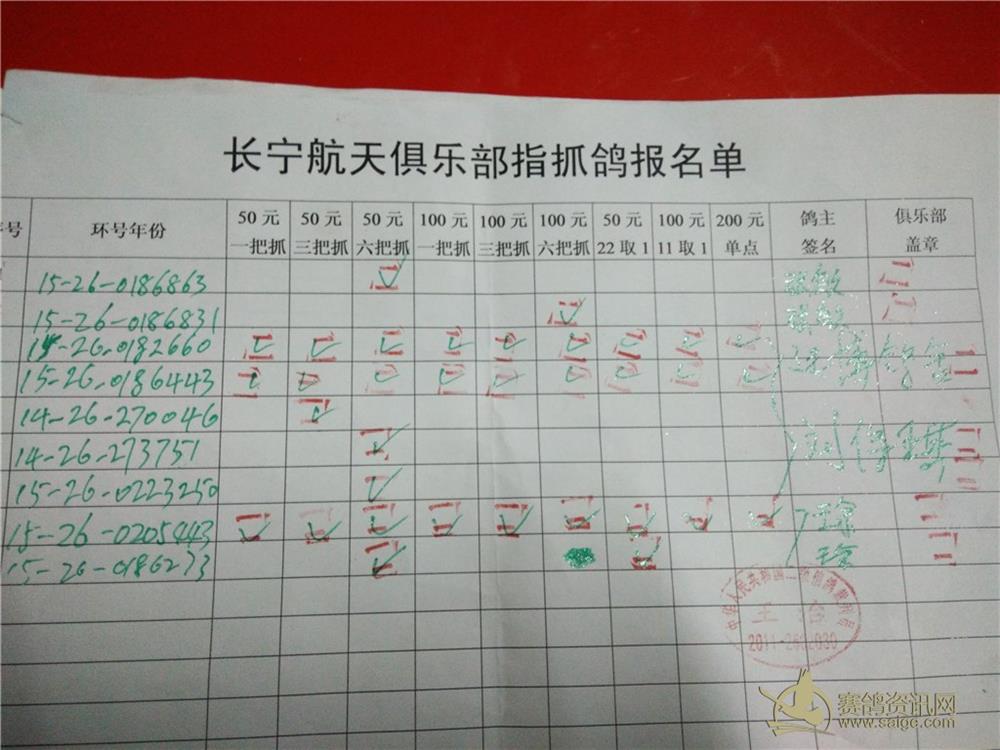 长宁航天俱乐部指抓鸽报名单
序号 环号年份 50元一把抓 50元三把抓 50元六把抓 100元一把抓 100元三把抓 100元六把抓 50元22取1 100元11取1 200元单点 鸽主签名 俱乐部盖章
15-26-0186863
15-26-0186831
15-26-0182660
15-26-0186443
14-26-270046
14-26-273751
15-26-0223250
15-26-0205443
15-26-0186273
中华人民共和国
赛鸽资讯网
www.saige.com